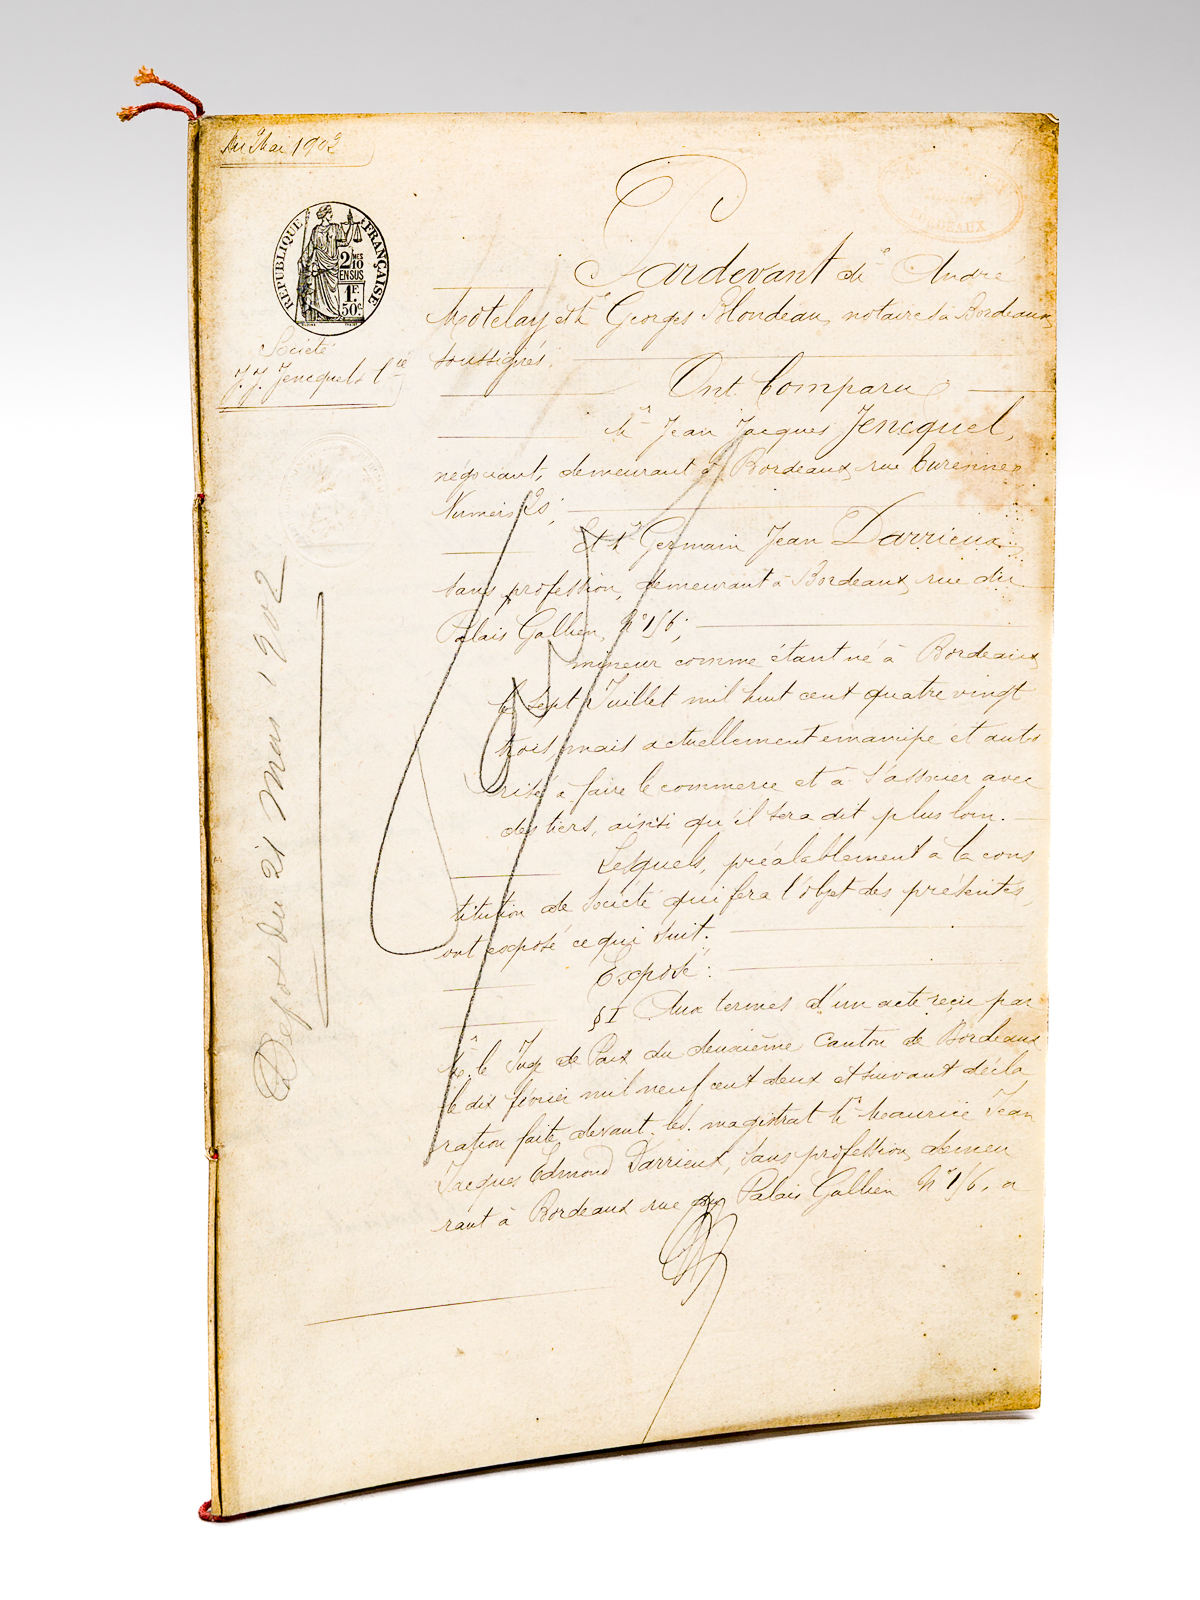 Mai 1902
RÉPUBLIQUE FRANÇAISE
2 MES
10
EN SUS
1 F.
50 C.
Société
J. J. Jencquel & Cie
Dépôt du 21 Mai 1902
BORDEAUX
Pardevant Me André
Motelay et Me Georges Blondeau, notaires à Bordeaux,
soussignés.
Ont Comparu
Mr Jean Jacques Jencquel,
négociant, demeurant à Bordeaux, rue Turenne,
Numéro
Et Mr Germain Jean Darrieux,
sans profession, demeurant à Bordeaux, rue du
Palais Gallien, No 156;
mineur comme étant né à Bordeaux,
le sept Juillet mil huit cent quatre vingt
trois, mais actuellement émancipé et auto
risé à faire le commerce et à s'associer avec
des tiers, ainsi qu'il sera dit plus loin.
Lesquels, préalablement à la cons
titution de Société qui fera l'objet des présentes,
ont exposé ce qui suit.
Exposé:
§ I Aux termes d'un acte reçu par
Mr le Juge de Paix du deuxième Canton de Bordeaux
le dix février mil neuf cent deux et suivant décla
ration faite devant led. magistrat Mr Maurice Jean
Jacques Edmond Darrieux, sans profession, demeu
rant à Bordeaux rue du Palais Gallien No 156, a